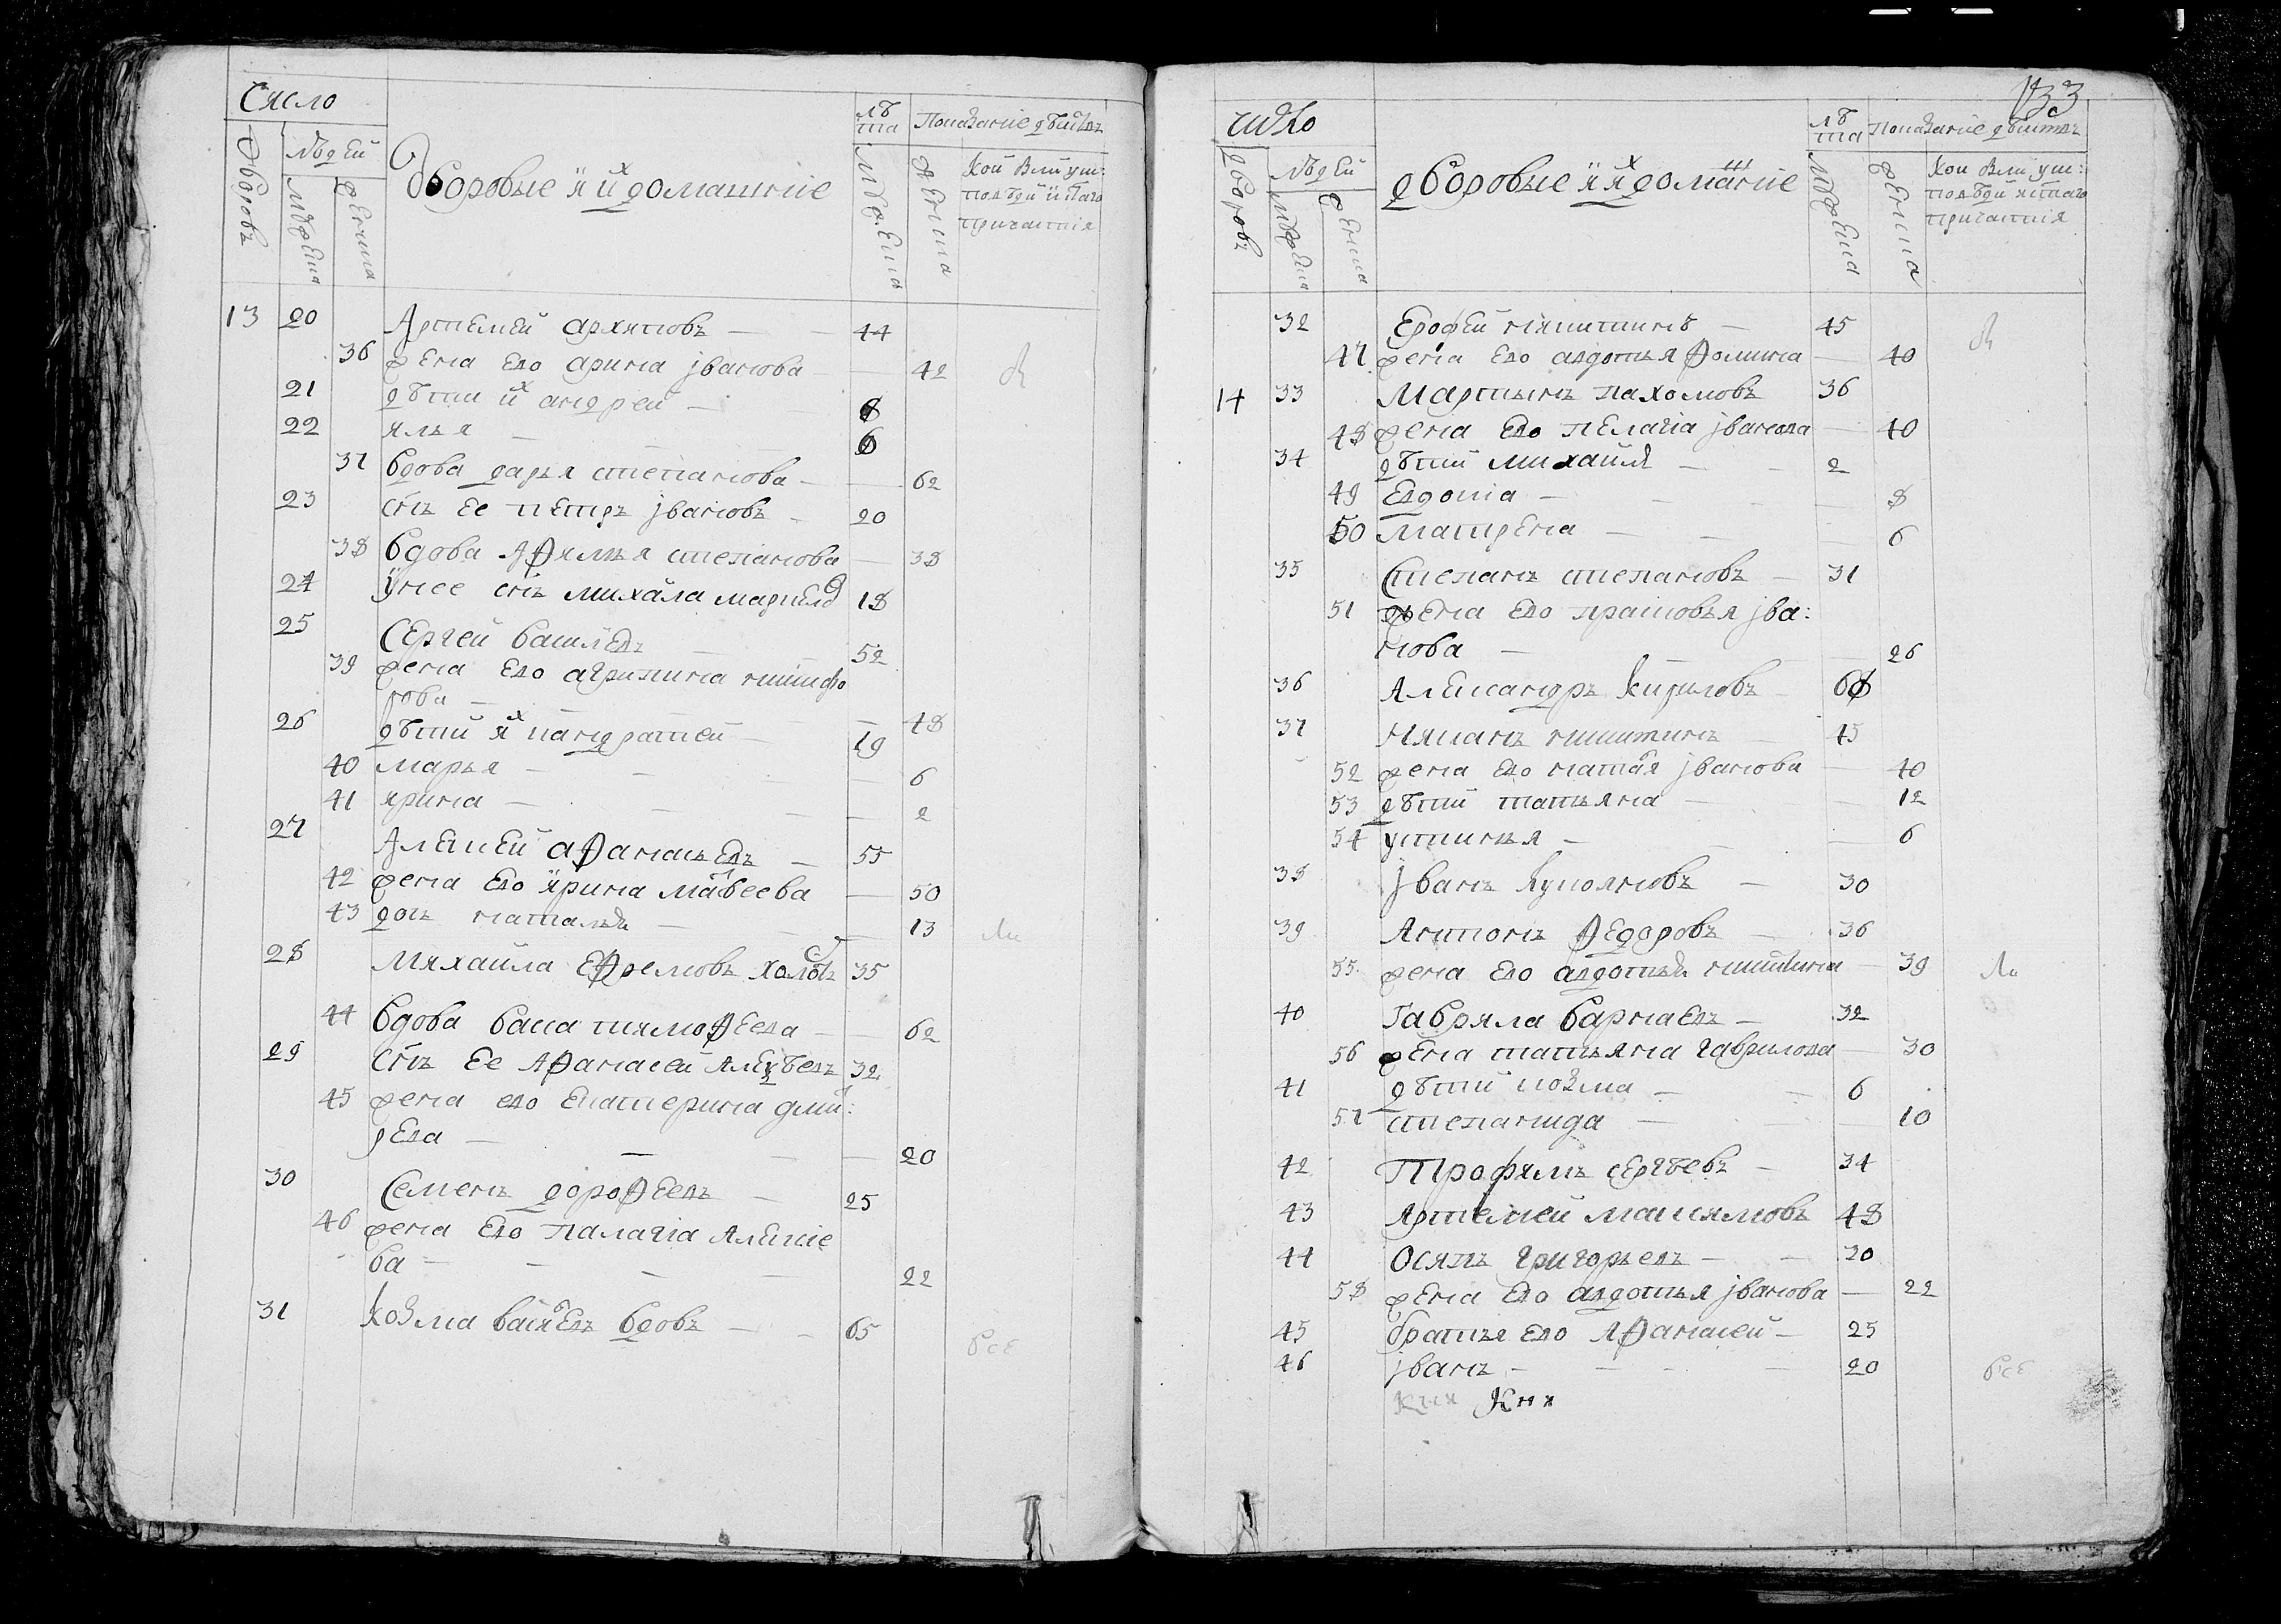 Число
Дворовъ
людей
мужеска
женска
Дворовые и ихъ домашние
лѣта
мужеска
женска
Показание действъ
Кой
13 20 Артемей архиповъ — 44
36 жена ево арина iванова — 42
21 дѣти их андрей — 8
22 илья — 6
37 вдова дарья степанова — 62
23 снъ ее петръ iвановъ — 20
38 вдова Афимья степанова — 38
24 у нее снъ михаила 18
25 Сергей василевъ 52
39 жена ево агрипина никифо
рова — 48
26 дѣти их кандратей — 19
40 марья — 6
41 ирина — 2
27 Алексей афанасьевъ — 55
42 жена ево ирина матвеева — 50
43 доч наталья — 13
28 Михаила ефремовъ холостъ 35
44 вдова васа тимофеева — 62
29 снъ ее Афанасей 32
45 жена ево екатерина дмит:
рева — 20
30 Семенъ дорофеевъ — 25
46 жена ево палагiа Алексие
ва — 22
31 козма васильевъ вдовъ — 65
все
133
число
дворовъ
людей
мужеска
женска
дворовые и их домашние
лѣта
мужеска
женска
Показание действъ
Кои
32 Ерофей никитинъ — 45
47 жена ево авдотья фомина — 40
14 33 Мартынъ пахомовъ 36
48 жена ево пелагiа iванова — 40
34 дѣти михайла — 2
49 Евдокiа — 8
50 матрена — 6
35 Степанъ степановъ — 31
51 жена ево прасковья iва:
нова — 26
36 Александръ кириловъ 60
37 никитинъ — 45
52 жена ево наталья iванова — 40
53 дѣти татьяна — 12
54 устинья — 6
38 iванъ — 30
39 Антонъ Федоровъ — 36
55 жена ево авдотья никитина — 39
40 Гаврила — 32
56 жена татьяна гаврилова — 30
41 дѣти козма — 6
57 степанида — 10
42 Трофимъ сергѣевъ — 34
43 Артемей максимовъ 48
44 Осипъ григорьевъ — 20
58 жена ево авдотья iванова — 22
45 братья ево Афанасей — 25
46 iванъ — 20
все
Кня Кня